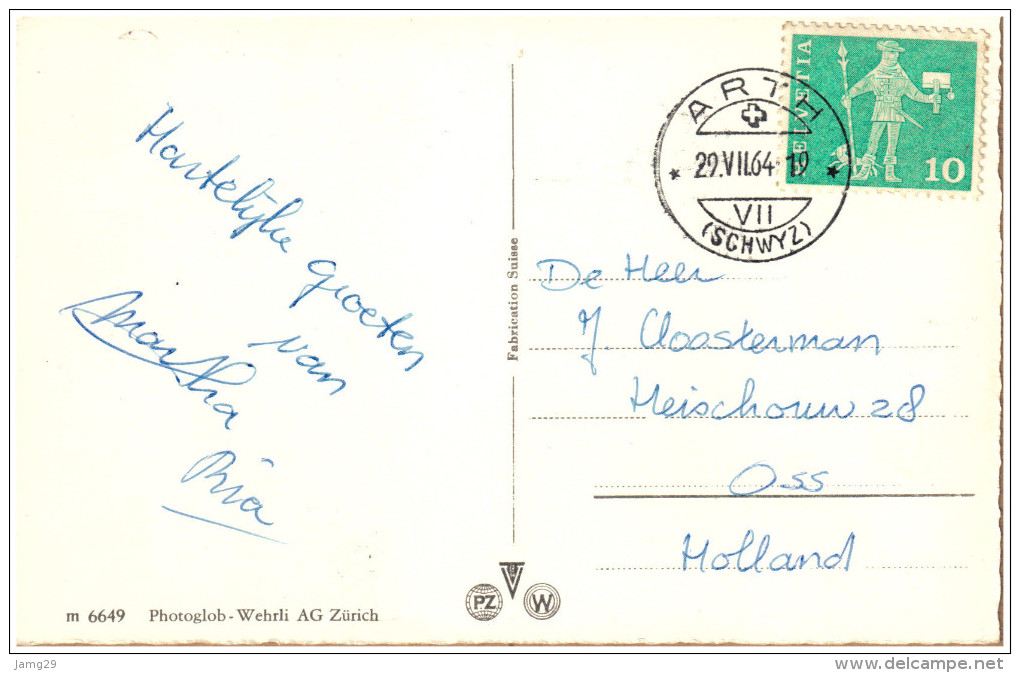 Hartelijke groeten
van
Martha
Ria
m 6649 Photoglob-Wehrli AG Zürich
Fabrication Suisse
PZ
W
ARTH
29.VII.64 19
VII
(SCHWYZ)
HELVETIA
10
De Heer
J. Cloosterman
Heischouw 28
Oss
Holland
Jamg29
www.delcampe.net